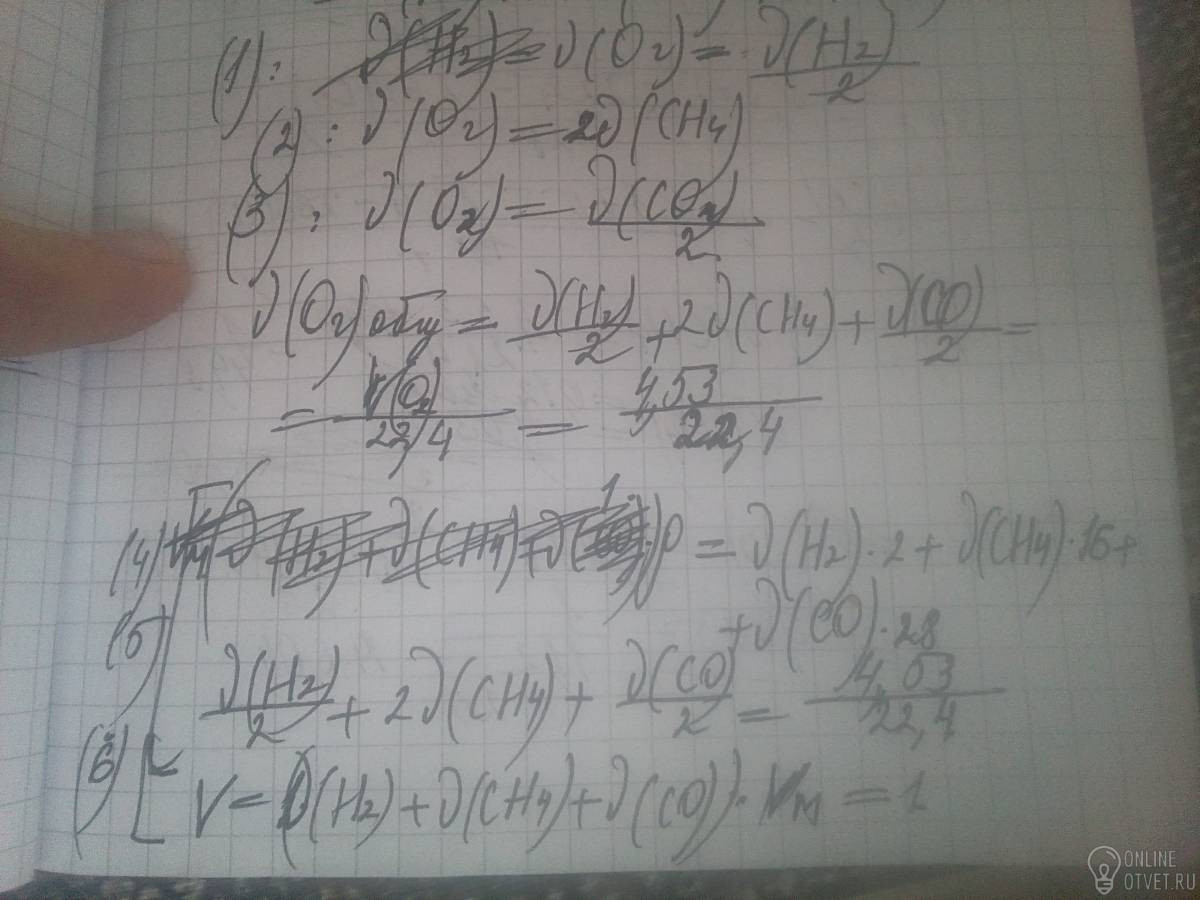 (1): ν(O2) = ν(H2)/2
(2): ν(O2) = 2ν(CH4)
(3): ν(O2) = ν(CO2)/2
ν(O2)общ = ν(H2)/2 + 2ν(CH4) + ν(CO)/2 =
= V(O2)/22,4 = 4,53/22,4
(4) = ν(H2)·2 + ν(CH4)·16+
+ν(CO)·28
(5) ν(H2)/2 + 2ν(CH4) + ν(CO)/2 = 4,53/22,4
(6) V = (ν(H2) + ν(CH4) + ν(CO))·Vm = 1
ONLINE
OTVET.RU